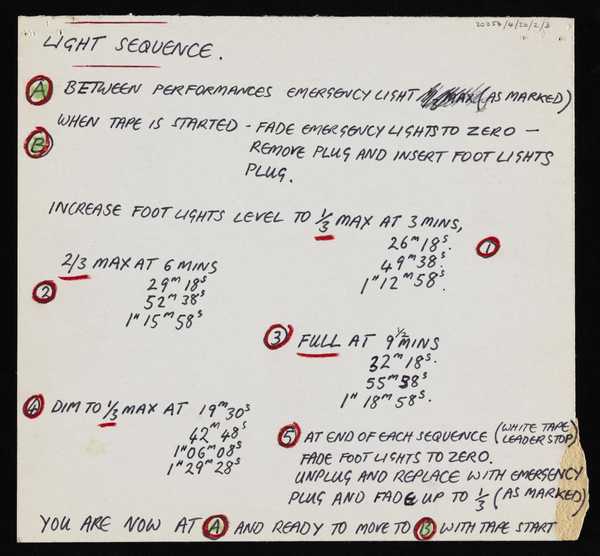 20053/4/20/2/3
LIGHT SEQUENCE.
A BETWEEN PERFORMANCES EMERGENCY LIGHT MAX (AS MARKED)
B WHEN TAPE IS STARTED - FADE EMERGENCY LIGHTS TO ZERO -
REMOVE PLUG AND INSERT FOOT LIGHTS
PLUG.
INCREASE FOOT LIGHTS LEVEL TO 1/3 MAX AT 3 MINS,
26m 18s.
49m 38s.
1H 12m 58s.
1
2/3 MAX AT 6 MINS
2
29m 18s
52m 38s
1H 15m 58s
3 FULL AT 9 1/2 MINS
32m 18s.
55m 38s
1H 18m 58s.
4 DIM TO 1/3 MAX AT 19m 30s
42m 48s
1H 06m 08s
1H 29m 28s
5 AT END OF EACH SEQUENCE (WHITE TAPE LEADER STOP)
FADE FOOT LIGHTS TO ZERO.
UNPLUG AND REPLACE WITH EMERGENCY
PLUG AND FADE UP TO 1/3 (AS MARKED)
YOU ARE NOW AT A AND READY TO MOVE TO B WITH TAPE START